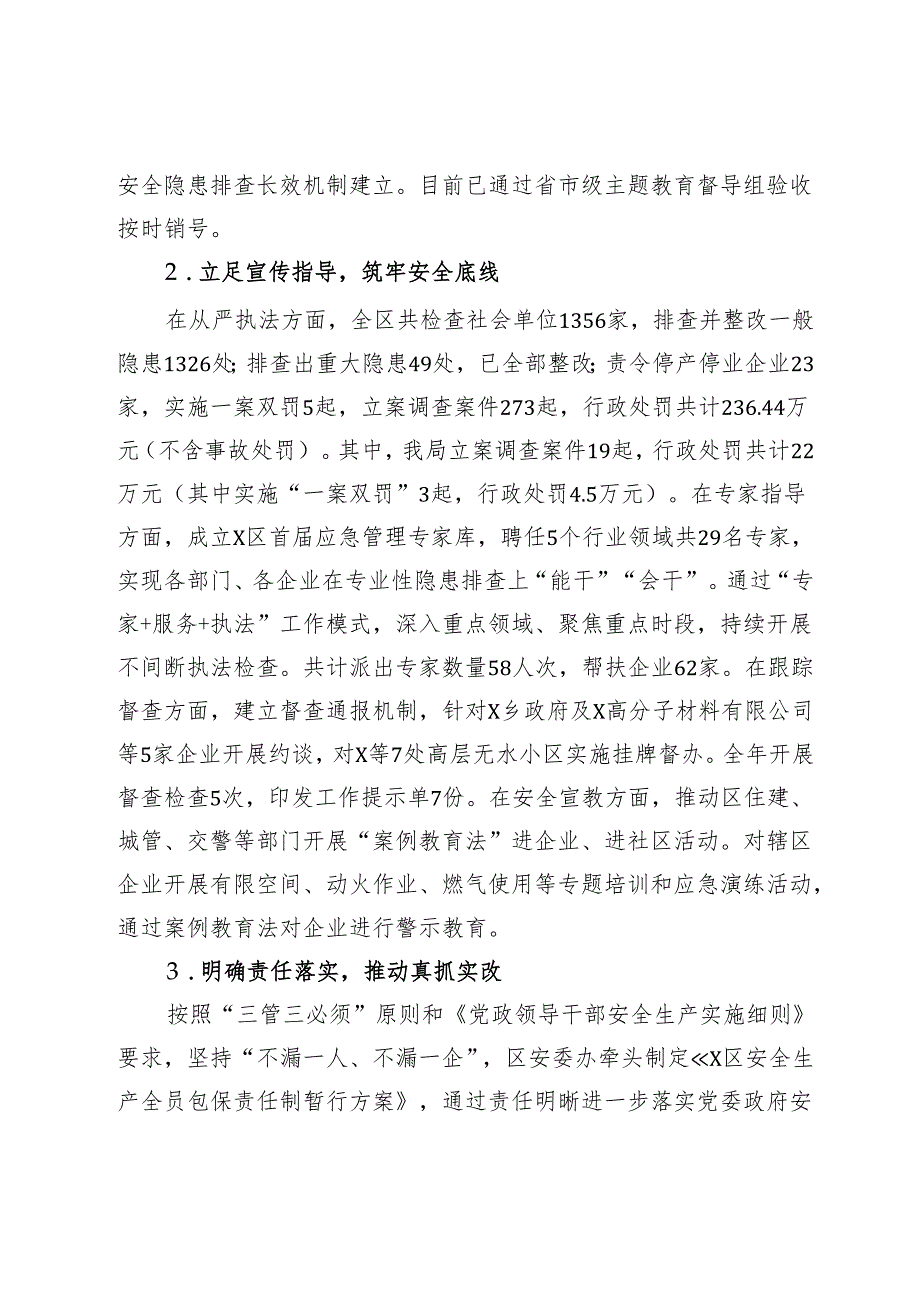 安全隐患排查长效机制建立。目前已通过省市级主题教育督导组验收
按时销号。
2.立足宣传指导，筑牢安全底线
在从严执法方面，全区共检查社会单位1356家，排查并整改一般
隐患1326处；排查出重大隐患49处，已全部整改；责令停产停业企业23
家，实施一案双罚5起，立案调查案件273起，行政处罚共计236.44万
元（不含事故处罚）。其中，我局立案调查案件19起，行政处罚共计22
万元（其中实施“一案双罚”3起，行政处罚4.5万元）。在专家指导
方面，成立X区首届应急管理专家库，聘任5个行业领域共29名专家，
实现各部门、各企业在专业性隐患排查上“能干”“会干”。通过“专
家+服务+执法”工作模式，深入重点领域、聚焦重点时段，持续开展
不间断执法检查。共计派出专家数量58人次，帮扶企业62家。在跟踪
督查方面，建立督查通报机制，针对X乡政府及X高分子材料有限公司
等5家企业开展约谈，对X等7处高层无水小区实施挂牌督办。全年开展
督查检查5次，印发工作提示单7份。在安全宣教方面，推动区住建、
城管、交警等部门开展“案例教育法”进企业、进社区活动。对辖区
企业开展有限空间、动火作业、燃气使用等专题培训和应急演练活动，
通过案例教育法对企业进行警示教育。
3.明确责任落实，推动真抓实改
按照“三管三必须”原则和《党政领导干部安全生产实施细则》
要求，坚持“不漏一人、不漏一企”，区安委办牵头制定≪X区安全生
产全员包保责任制暂行方案》，通过责任明晰进一步落实党委政府安